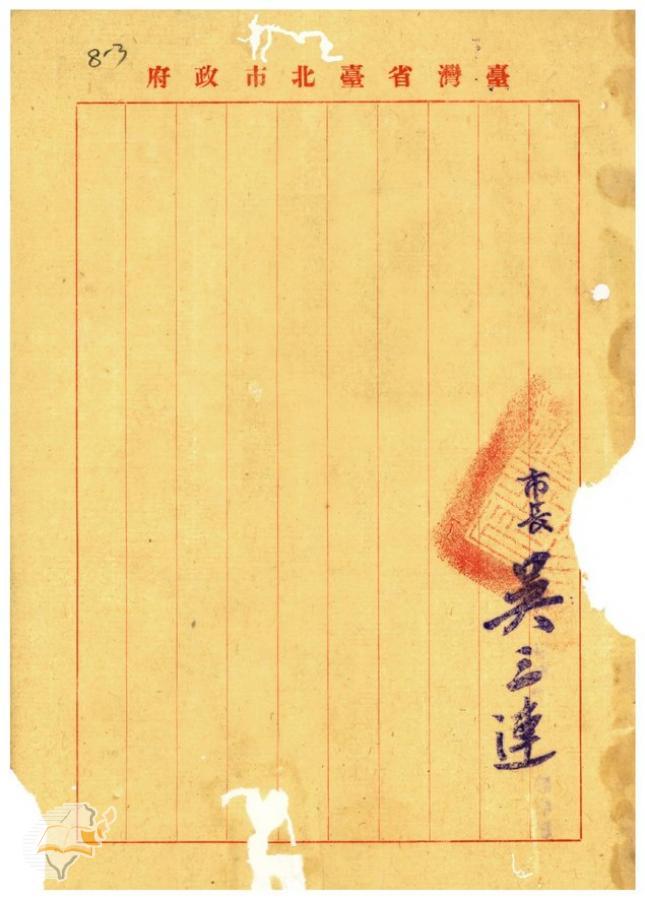 8-3
臺灣省臺北市政府
市長 吳三連